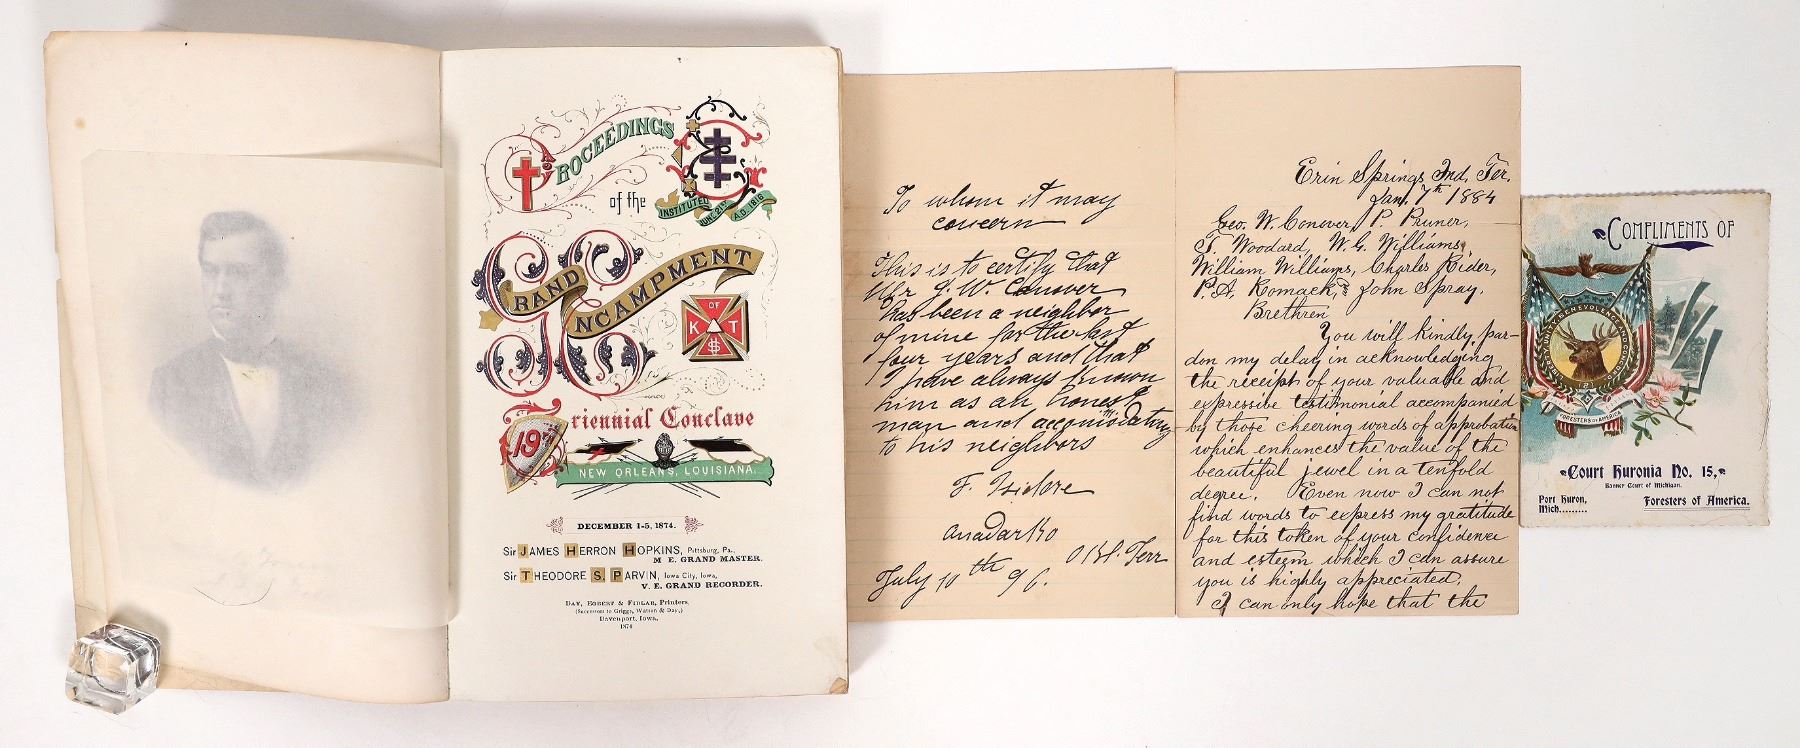 PROCEEDINGS
of the
INSTITUTED JUNE 21ST A.D. 1816
GRAND
ENCAMPMENT
OF
K T
19th
Triennial Conclave
NEW ORLEANS, LOUISIANA.
DECEMBER 1-5, 1874.
Sir JAMES HERRON HOPKINS, Pittsburg, Pa.,
M. E. GRAND MASTER.
Sir THEODORE S. PARVIN, Iowa City, Iowa,
V. E. GRAND RECORDER.
DAY, EGBERT & FIDLAR, Printers,
(Successors to Griggs, Watson & Day,)
Davenport, Iowa.
1874
To whom it may
concern
This is to certify that
Mr G. W. Conover
has been a neighbor
of mine for the last
four years and that
I have always known
him as an honest
man and accomidating
to his neighbors
F. Isidore
Anadarko
Okl. Terr
July 10th 96.
Erin Springs Ind. Ter.
Jan. 7th 1884
Geo. W. Conover, P. Pruner,
T. Woodard, W. G. Williams,
William Williams, Charles Rider,
P. A. Romack, & John Spray.
Brethren
You will kindly par-
don my delay in acknowledging
the receipt of your valuable and
expressive testimonial accompanied
by those cheering words of approbation
which enhances the value of the
beautiful jewel in a tenfold
degree. Even now I can not
find words to express my gratitude
for this token of your confidence
and esteem which I can assure
you is highly appreciated.
I can only hope that the
COMPLIMENTS OF
LIBERTY, UNITY, BENEVOLENCE AND CONCORD
FORESTERS OF AMERICA
Court Huronia No. 15,
Banner Court of Michigan.
Port Huron,
Mich.........
Foresters of America.